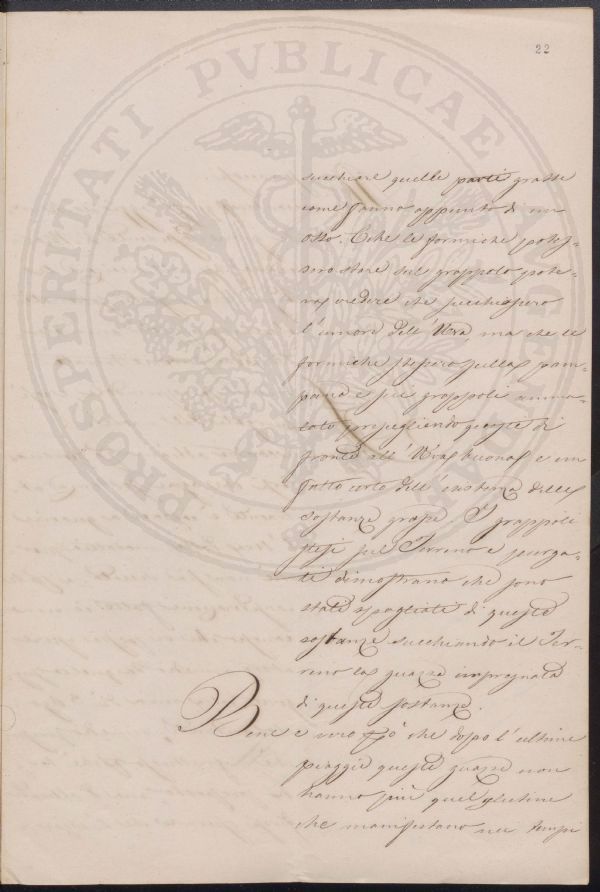 22
succhiare quelle parte grasse
come fanno appunto di un
osso. Che le formiche potes-
sero stare sul grappolo pote-
vas vedere che succhiassero
l'umore dell'Uva, ma che le
formiche stassero sullas pam-
pana e sui grappoli amma-
lati prescegliendo queste di
fronte all'Uvas buonas e un
fatto certo dell'esistenza delle
sostanze grasse. I grappoli
stesi sul Terreno e purga-
ti dimostrano che sono
state spogliate di queste
sostanze succhiando il Ter-
reno las guazza impregnata
di queste sostanze.
Bene e vero però che dopo l'ultime
piaggie queste guazze non
hanno più quel glutine
che manifestano nei tempi
PROSPERITATI PVBLICAE